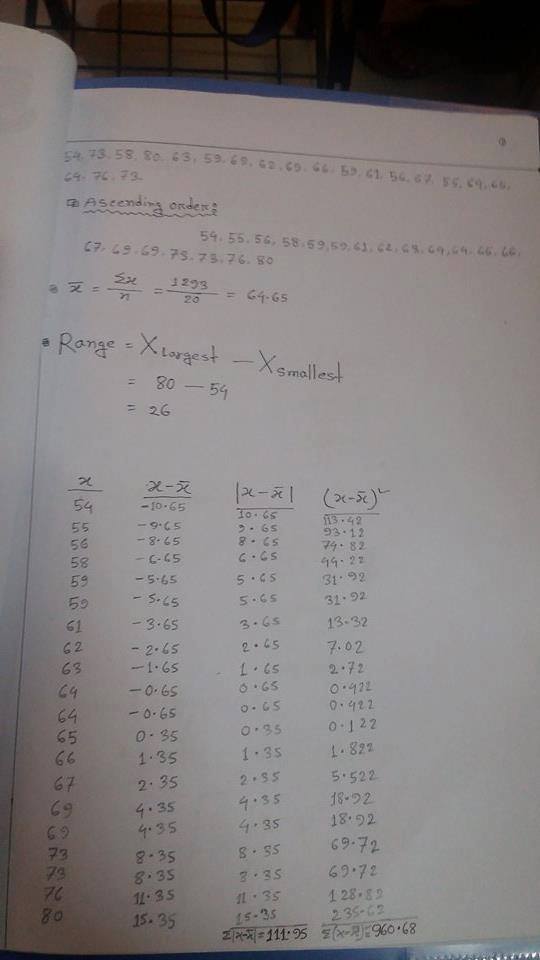 54, 73, 58, 80, 63, 59, 69, 62, 69, 66, 59, 61, 56, 67, 55, 64, 65,
64, 76, 73.
Ascending order:
54, 55, 56, 58, 59, 59, 61, 62, 63, 64, 64, 65, 66,
67, 69, 69, 73, 73, 76, 80
x̄ = Σx/n = 1293/20 = 64.65
Range = X largest — X smallest
= 80 — 54
= 26
x x-x̄ |x-x̄| (x-x̄)²
54 -10.65 10.65 113.42
55 -9.65 9.65 93.12
56 -8.65 8.65 74.82
58 -6.65 6.65 44.22
59 -5.65 5.65 31.92
59 -5.65 5.65 31.92
61 -3.65 3.65 13.32
62 -2.65 2.65 7.02
63 -1.65 1.65 2.72
64 -0.65 0.65 0.422
64 -0.65 0.65 0.422
65 0.35 0.35 0.122
66 1.35 1.35 1.822
67 2.35 2.35 5.522
69 4.35 4.35 18.92
69 4.35 4.35 18.92
73 8.35 8.35 69.72
73 8.35 8.35 69.72
76 11.35 11.35 128.82
80 15.35 15.35 235.62
Σ|x-x̄| = 111.95 Σ(x-x̄)² = 960.68